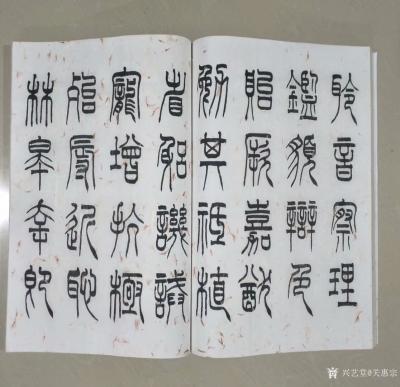 聆音察理
鑑貌辯色
貽厥嘉猷
勉其祗植
省躬譏誡
寵增抗極
殆辱近恥
林皋幸即
兴艺堂@关惠宗